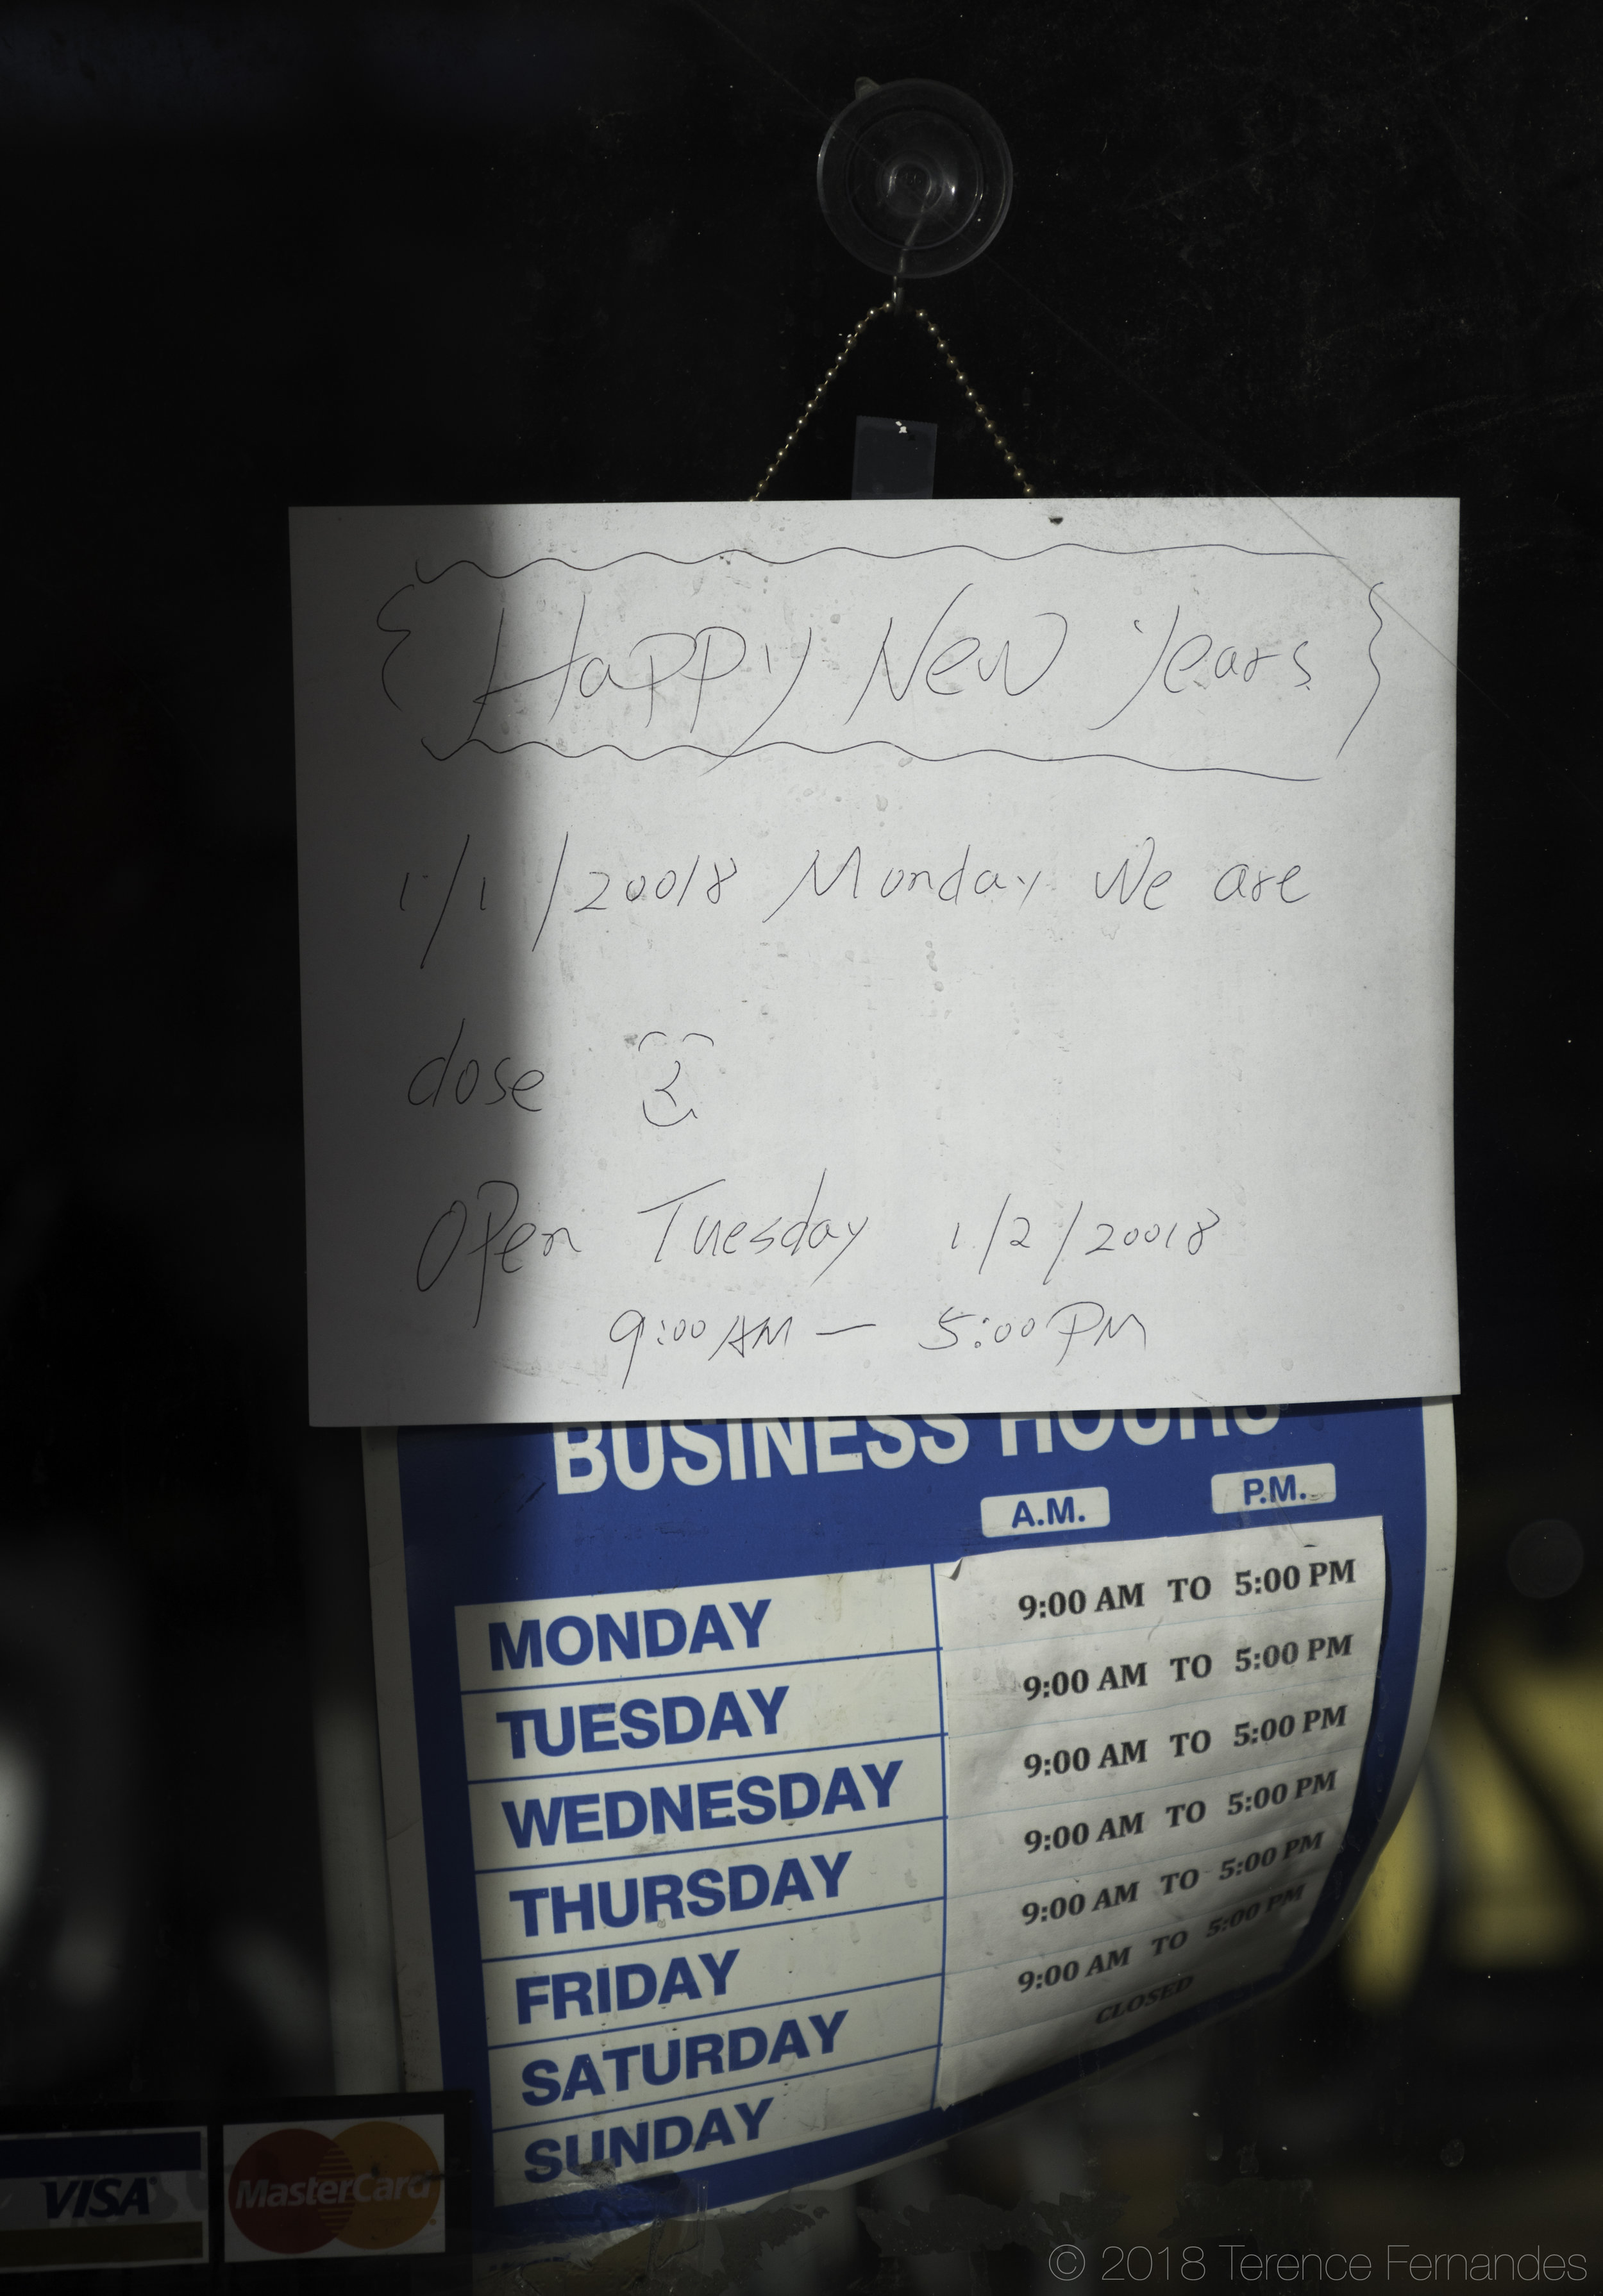 Happy New Years
1/1/20018 Monday We are
close
Open Tuesday 1/2/20018
9:00 AM — 5:00 PM
BUSINESS HOURS
A.M. P.M.
MONDAY 9:00 AM TO 5:00 PM
TUESDAY 9:00 AM TO 5:00 PM
WEDNESDAY 9:00 AM TO 5:00 PM
THURSDAY 9:00 AM TO 5:00 PM
FRIDAY 9:00 AM TO 5:00 PM
SATURDAY 9:00 AM TO 5:00 PM
SUNDAY CLOSED
VISA MasterCard
© 2018 Terence Fernandes